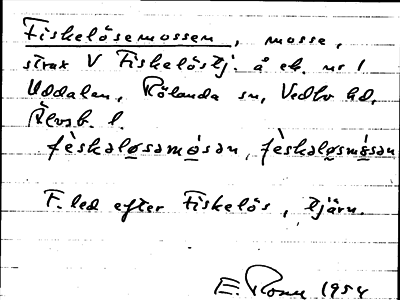 Fiskelösemossen, mosse,
strax V Fiskelöstj. å ek. nr 1
Uddalen, Rölanda sn, Vedbo hd,
Älvsb. l.
fèskəlo̲səmó̲sən, fèskəlo̲smó̲sən
F. led efter Fiskelös, tjärn.
E. Rosen 1954